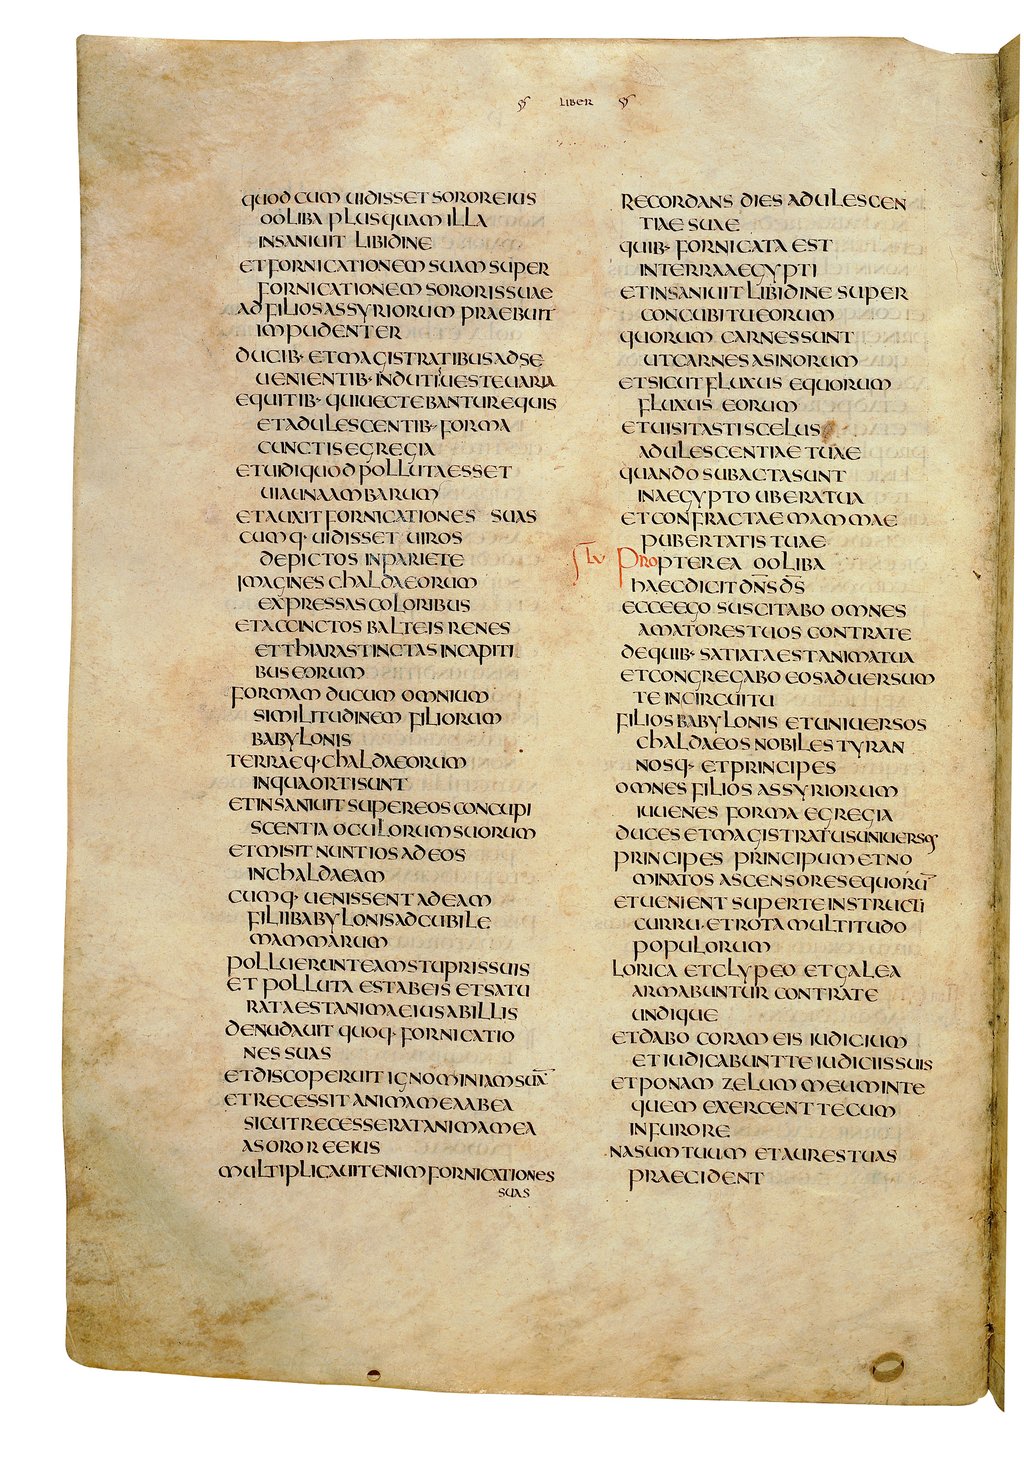 LIBER
QUOD CUM UIDISSET SOROR EIUS
OOLIBA PLUS QUAM ILLA
INSANIUIT LIBIDINE
ET FORNICATIONEM SUAM SUPER
FORNICATIONEM SORORIS SUAE
AD FILIOS ASSYRIORUM PRAEBUIT
IMPUDENTER
DUCIB· ET MAGISTRATIBUS AD SE
UENIENTIB· INDUTI UESTE UARIA
EQUITIB· QUI UECTEBANTUR EQUIS
ET ADULESCENTIB· FORMA
CUNCTIS EGREGIA
ET UIDI QUOD POLLUTA ESSET
UIA UNA AMBARUM
ET AUXIT FORNICATIONES SUAS
CUMQ· UIDISSET UIROS
DEPICTOS IN PARIETE
IMAGINES CHALDAEORUM
EXPRESSAS COLORIBUS
ET ACCINCTOS BALTEIS RENES
ET THIARAS TINCTAS IN CAPITI
BUS EORUM
FORMAM DUCUM OMNIUM
SIMILITUDINEM FILIORUM
BABYLONIS
TERRAEQ· CHALDAEORUM
IN QUA ORTI SUNT
ET INSANIUIT SUPER EOS CONCUPI
SCENTIA OCULORUM SUORUM
ET MISIT NUNTIOS AD EOS
IN CHALDAEAM
CUMQ· UENISSENT AD EAM
FILII BABYLONIS AD CUBILE
MAMMARUM
POLLUERUNT EAM STUPRIS SUIS
ET POLLUTA EST AB EIS ET SATU
RATA EST ANIMA EIUS AB ILLIS
DENUDAUIT QUOQ· FORNICATIO
NES SUAS
ET DISCOPERUIT IGNOMINIAM SUĀ
ET RECESSIT ANIMA MEA AB EA
SICUT RECESSERAT ANIMA MEA
A SORORE EIUS
MULTIPLICAUIT ENIM FORNICATIONES
SUAS
RECORDANS DIES ADULESCEN
TIAE SUAE
QUIB· FORNICATA EST
IN TERRA AEGYPTI
ET INSANIUIT LIBIDINE SUPER
CONCUBITU EORUM
QUORUM CARNES SUNT
UT CARNES ASINORUM
ET SICUT FLUXUS EQUORUM
FLUXUS EORUM
ET UISITASTI SCELUS
ADULESCENTIAE TUAE
QUANDO SUBACTA SUNT
IN AEGYPTO UBERA TUA
ET CONFRACTAE MAMMAE
PUBERTATIS TUAE
PROPTEREA OOLIBA
HAEC DICIT DN̄S DS̄
ECCE EGO SUSCITABO OMNES
AMATORES TUOS CONTRA TE
DE QUIB· SATIATA EST ANIMA TUA
ET CONGREGABO EOS ADUERSUM
TE IN CIRCUITU
FILIOS BABYLONIS ET UNIUERSOS
CHALDAEOS NOBILES TYRAN
NOSQ· ET PRINCIPES
OMNES FILIOS ASSYRIORUM
IUUENES FORMA EGREGIA
DUCES ET MAGISTRATUS UNIUERSOS
PRINCIPES PRINCIPUM ET NO
MINATOS ASCENSORES EQUORŪ
ET UENIENT SUPER TE INSTRUCTI
CURRU ET ROTA MULTITUDO
POPULORUM
LORICA ET CLYPEO ET GALEA
ARMABUNTUR CONTRA TE
UNDIQUE
ET DABO CORAM EIS IUDICIUM
ET IUDICABUNT TE IUDICIIS SUIS
ET PONAM ZELUM MEUM IN TE
QUEM EXERCENT TECUM
IN FURORE
NASUM TUUM ET AURES TUAS
PRAECIDENT